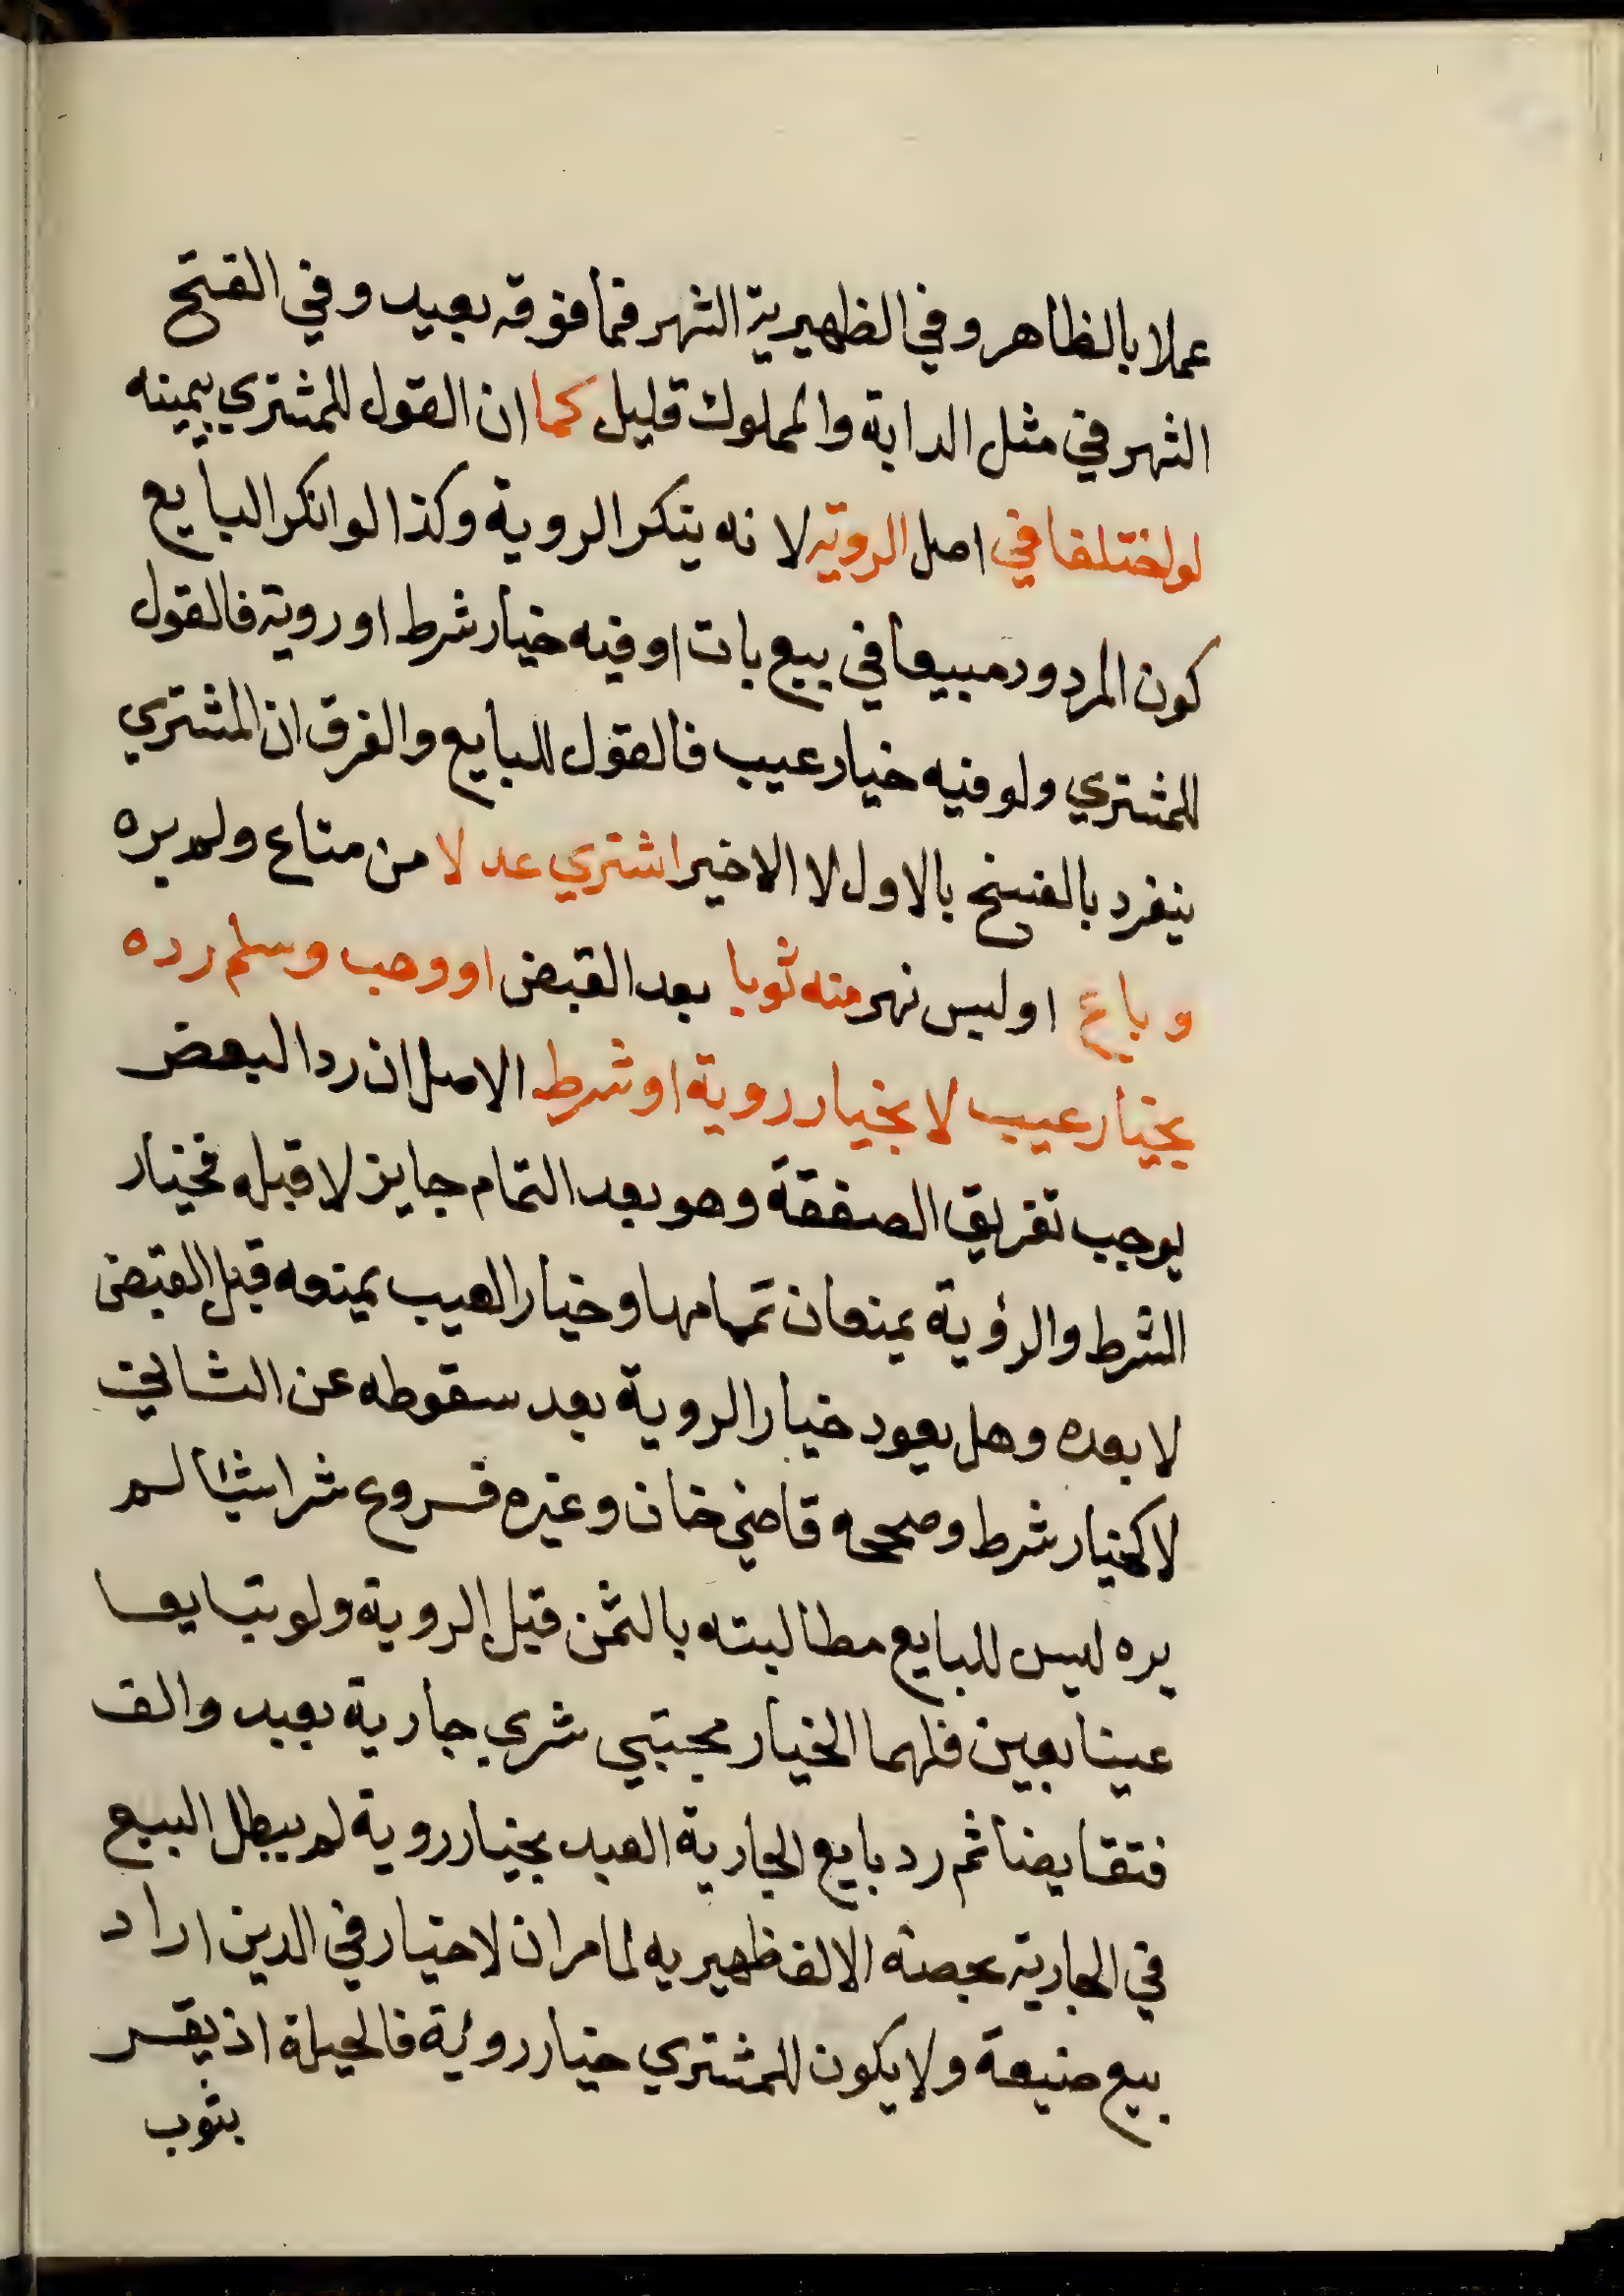 عملا بالظاهر وفي الظهيرية الشهر فما فوقه بعيد وفي الفتح
الشهر في مثل الدابة والمملوك قليل كما ان القول للمشتري بيمينه
لو اختلفا في اصل الروية لا نه ينكر الروية وكذا لو انكر البايع
كون المردود مبيعا في بيع بات او فيه خيار شرط او روية فالقول
للمشتري ولو فيه خيار عيب فالقول للبايع والفرق ان المشتري
ينفرد بالفسخ بالاول لا الاخير اشتري عدلا من متاع ولم يره
وباع او لبس نهر منه ثوبا بعد القبض او وهب وسلم رده
بخيار عيب لا بخيار روية او شرط الاصل ان رد البعض
يوجب تفريق الصفقة وهو بعد التمام جايز لا قبله فخيار
الشرط والرؤية يمنعان تمامها وخيار العيب يمنعه قبل القبض
لا بعده وهل يعود خيار الروية بعد سقوطه عن الثاني
لا كخيار شرط وصححه قاضي خان وغيره فروع شرا شيئا لم
يره ليس للبايع مطالبته بالثمن قبل الروية ولو تبايعا
عينا بعين فلهما الخيار مجتبي شري جارية بعبد والف
فتقابضا ثم رد بايع الجارية العبد بخيار روية لم يبطل البيع
في الجارية بحصة الالف ظهيريه لما مر ان لا خيار في الدين اراد
بيع ضيعة ولا يكون للمشتري خيار روئية فالحيلة ان يقر
بثوب